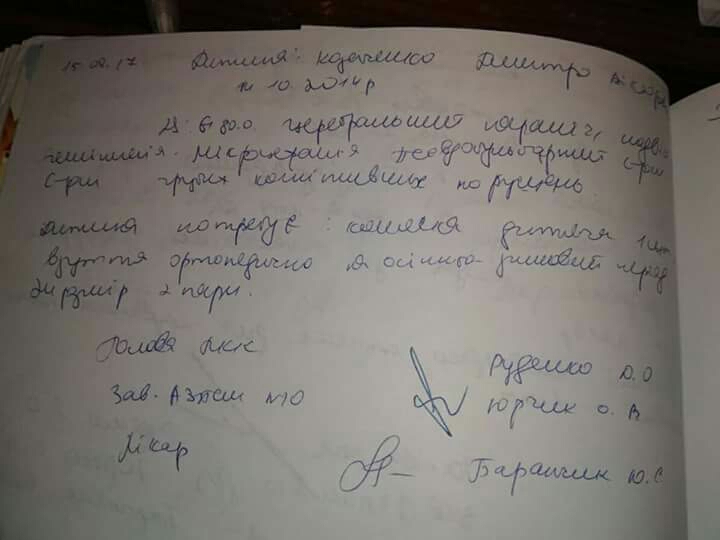 15.02.17 Дитина: Козаченко Дмитро Вікторо
10.2014р
Дз: G 80.0. церебральний параліч, подвій
геміплегія. Мікроцефалія псевдобульбарний с-ром
С-ром грубих когнітивних порушень.
Дитина потребує: коляска дитяча 1 шт
взуття ортопедично на осінньо-зимовий період
2 пари.
Голова ЛКК Руденко Д.О
Зав. АЗПСМ №10 Юрчик О.В
Лікар Баранчик Ю.С